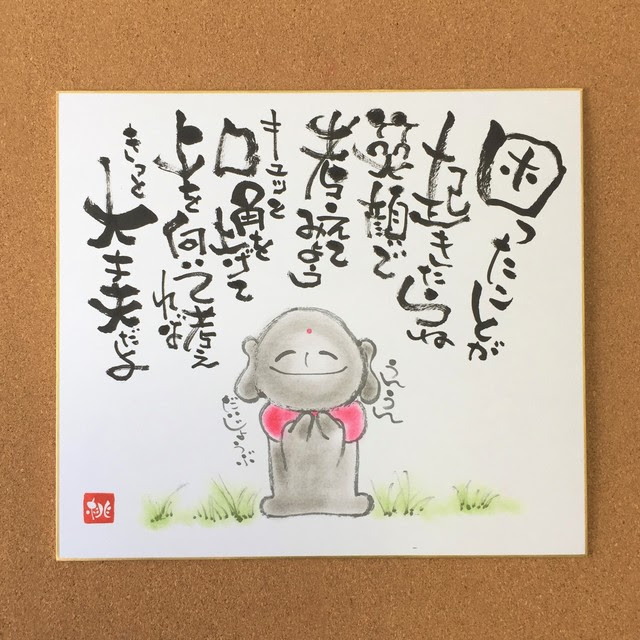 困ったことが
起きたらね
笑顔で
考えてみよう
キュッと
口角を上げて
上を向いて考え
れば
きっと
大丈夫だよ
うんうん
だいじょうぶ